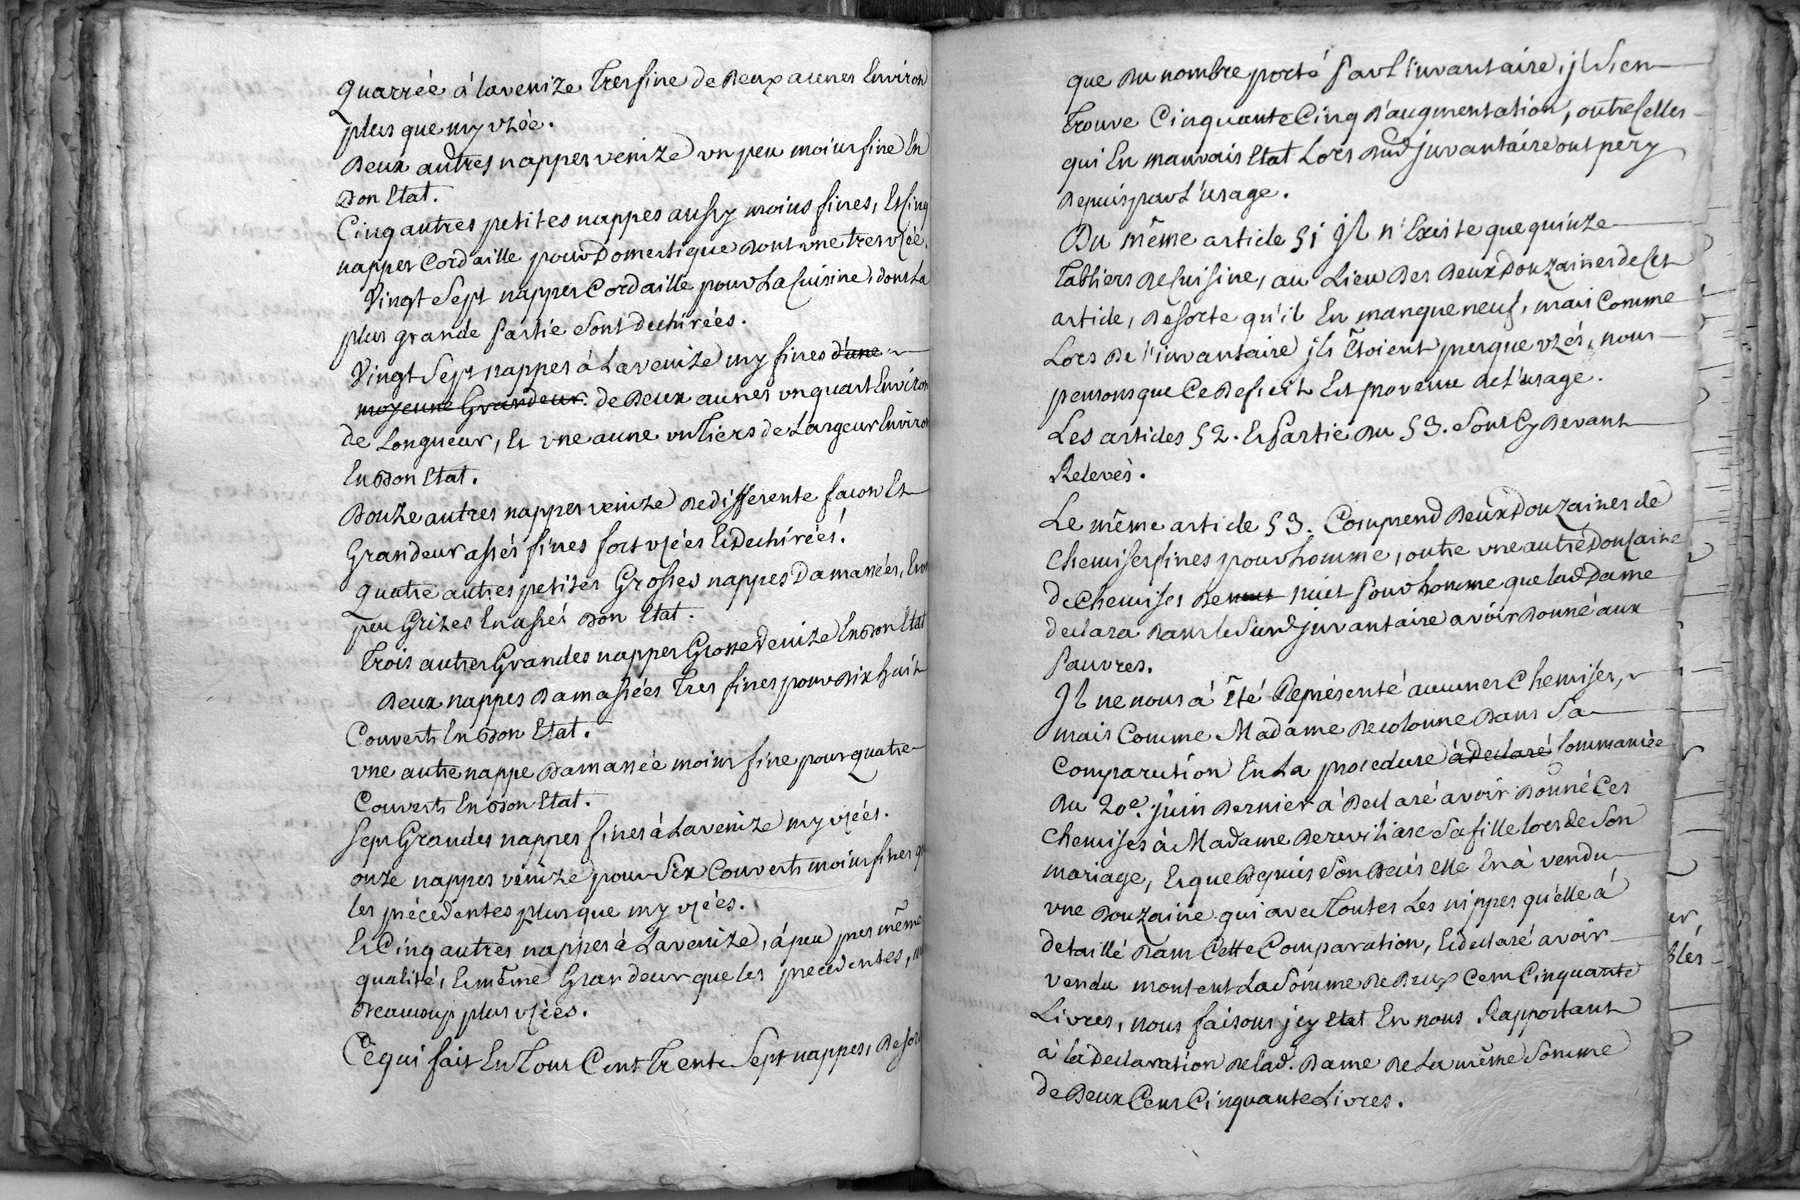 quarrée à lavenize Tres fine de Deux aunes Environ
plus que my vzée.
Deux autres nappes venize un peu moins fine En
Bon Etat.
Cinq autres petites nappes aussy moins fines, Et Cinq
nappes Cordaille pour Domestique Dont une tres vsée.
Vingt Sept nappes Cordaille pour La Cuisine, dont La
plus grande partie sont dechirées.
Vingt Sept nappes à Lavenize my fines d'une
moyenne Grandeur. de Deux aunes un quart Environ
de Longueur, Et une aune un Tiers de Largeur Environ
En Bon Etat.
Douze autres nappes venize De differente facon Et
Grandeur assés fines fort vsées Et Dechirées.
quatre autres petites Grosses nappes Damassées,
peu Grizes En assés Bon Etat.
Trois autres Grandes nappes Grosse Venize En Bon Etat
Deux nappes Damassées Tres fines pour Dix huit
Couverts En Bon Etat.
une autre nappe Damassée moins fine pour quatre
Couverts En Bon Etat.
Sept Grandes nappes fines à Lavenize my vsées.
onze nappes venize pour Six Couverts moins fines
les précédentes plus que my vsées.
Et Cinq autres nappes à Lavenize, à peu pres même
qualité, Et même Grandeur que les precedentes,
Beaucoup plus vsées.
Ce qui fait En Tout Cent Trente Sept nappes, De sor
que Du nombre porté Par L'invantaire, jl s'en
Trouve Cinquante Cinq D'augmentation, outre Celles
qui En mauvais Etat Lors Dud. jnvantaire ont péry
Depuis par L'usage.
Du même article 51 Jl n'Existe que quinze
Tabliers De Cuisine, au Lieu Des Deux Douzaines de Cet
article, De sorte qu'il En manque neuf, mais Comme
Lors De l'invantaire jls Étoient presque vzés, nous
pensons que Ce Deficit Est provenu De L'usage.
Les articles 52. Et Partie Du 53. sont Cy Devant
Relevés.
Le même article 53. Comprend Deux Douzaines de
Chemises fines pour homme, outre une autre Douzaine
de Chemises De nuit Pour homme que lad. Dame
declara Dans le Susd. jnvantaire avoir Donné aux
Pauvres.
Jl ne nous à Été Représenté aucunes Chemises,
mais Comme Madame De colonne Dans Sa
Comparution En La procedure à Declaré Commancée
Du 20e. juin Dernier à Declaré avoir Donné Ces
Chemises à Madame De Sa fille lors de Son
mariage, Et que Depuis son Decés elle En à vendu
une Douzaine qui avec Toutes Les nippes qu'elle à
detaillé Dans Cette Comparation, Et declaré avoir
vendu montent La Somme De Deux Cent Cinquante
Livres, nous faisons jcy Etat En nous Rapportant
à la Declaration De lad. Dame De La même Somme
de Deux Cent Cinquante Livres.